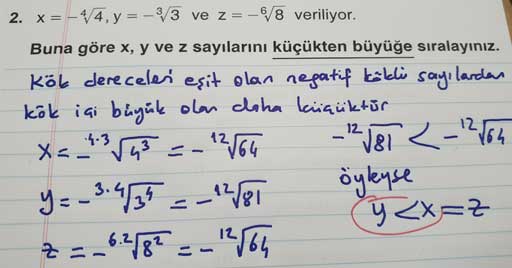 2. x = -∜4, y = -∛3 ve z = -⁶√8 veriliyor.
Buna göre x, y ve z sayılarını küçükten büyüğe sıralayınız.
Kök dereceleri eşit olan negatif köklü sayılardan
kök içi büyük olan daha küçüktür
x = -⁴·³√4³ = -¹²√64
y = -³·⁴√3⁴ = -¹²√81
z = -⁶·²√8² = -¹²√64
-¹²√81 < -¹²√64
öyleyse
y < x = z